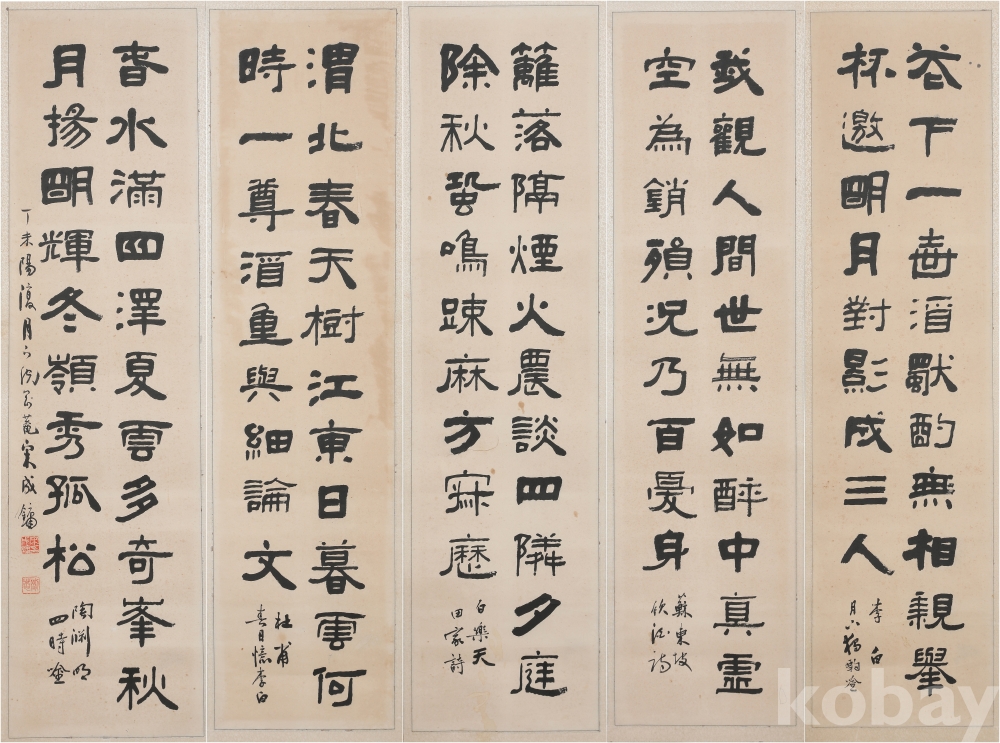 花下一壺酒獨酌無相親擧
杯邀明月對影成三人
李白
月下獨酌吟
我觀人間世無如醉中真虛
空為銷殞況乃百憂身
蘇東坡
飮酒詩
籬落隔煙火農談四隣夕庭
除秋蛩鳴疎麻方寂歷
白樂天
田家詩
渭北春天樹江東日暮雲何
時一尊酒重與細論文
杜甫
春日憶李白
春水滿四澤夏雲多奇峯秋
月揚明輝冬嶺秀孤松
陶淵明
四時吟
丁未陽復月下浣剛菴宋成鏞
kobay